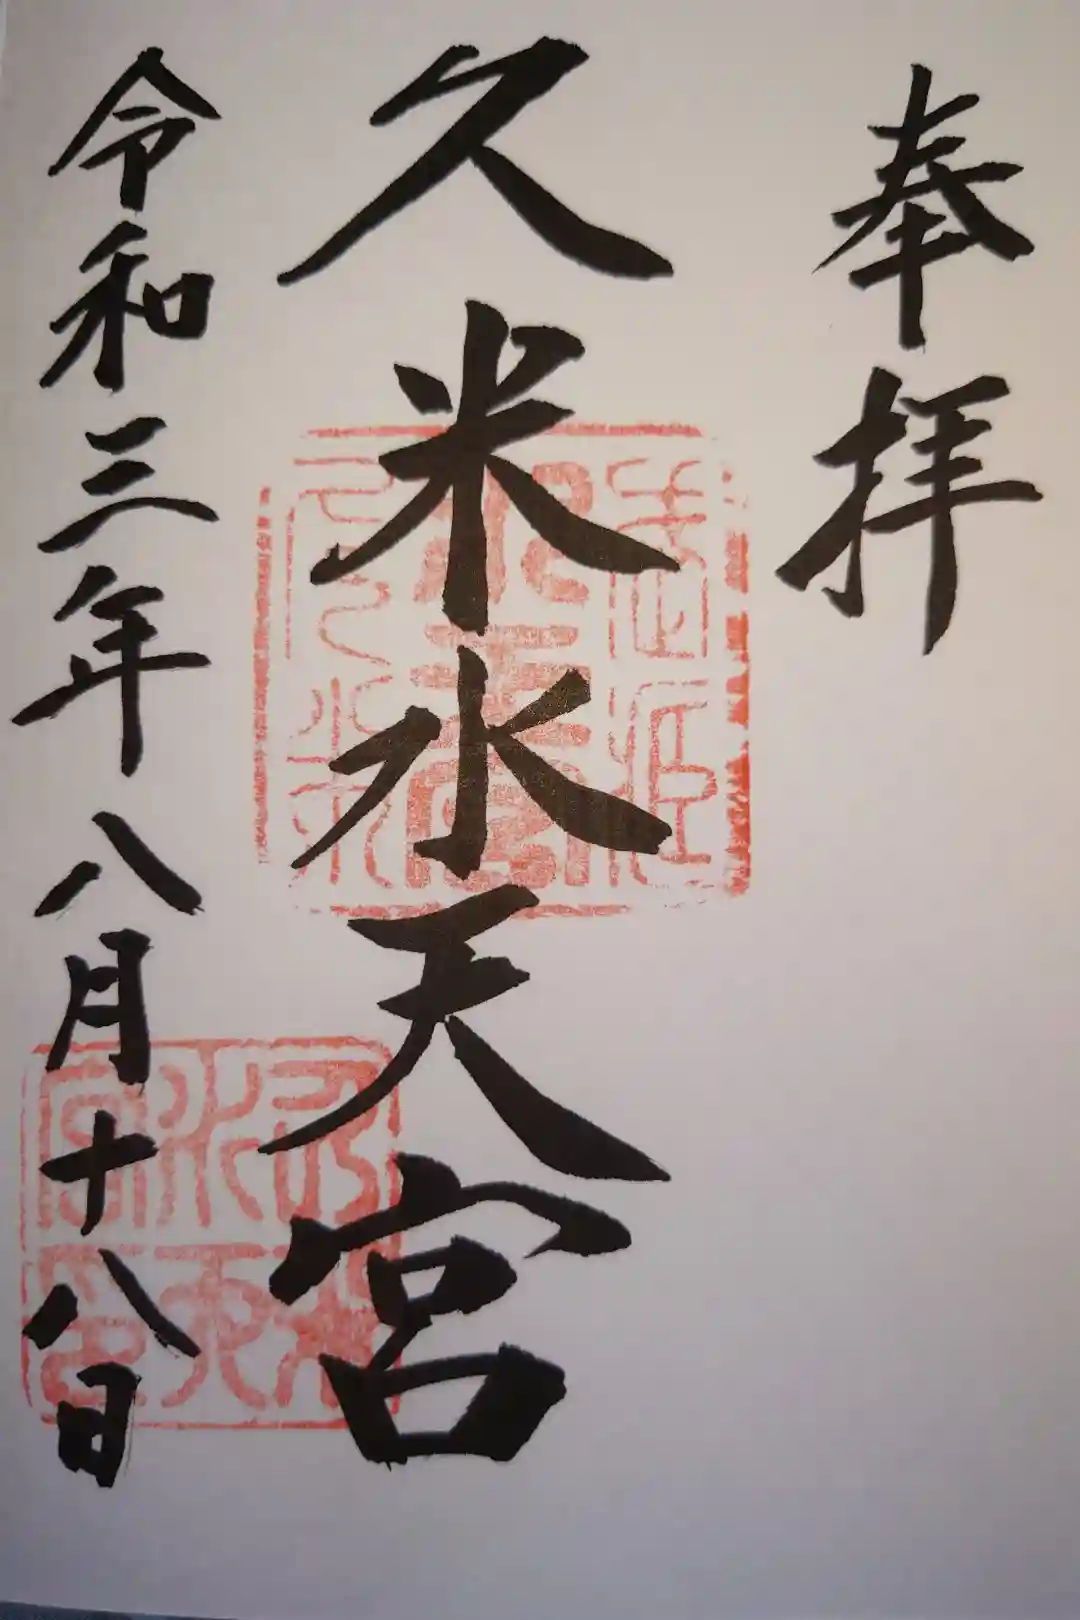 奉拝
久米水天宮
令和三年八月十八日